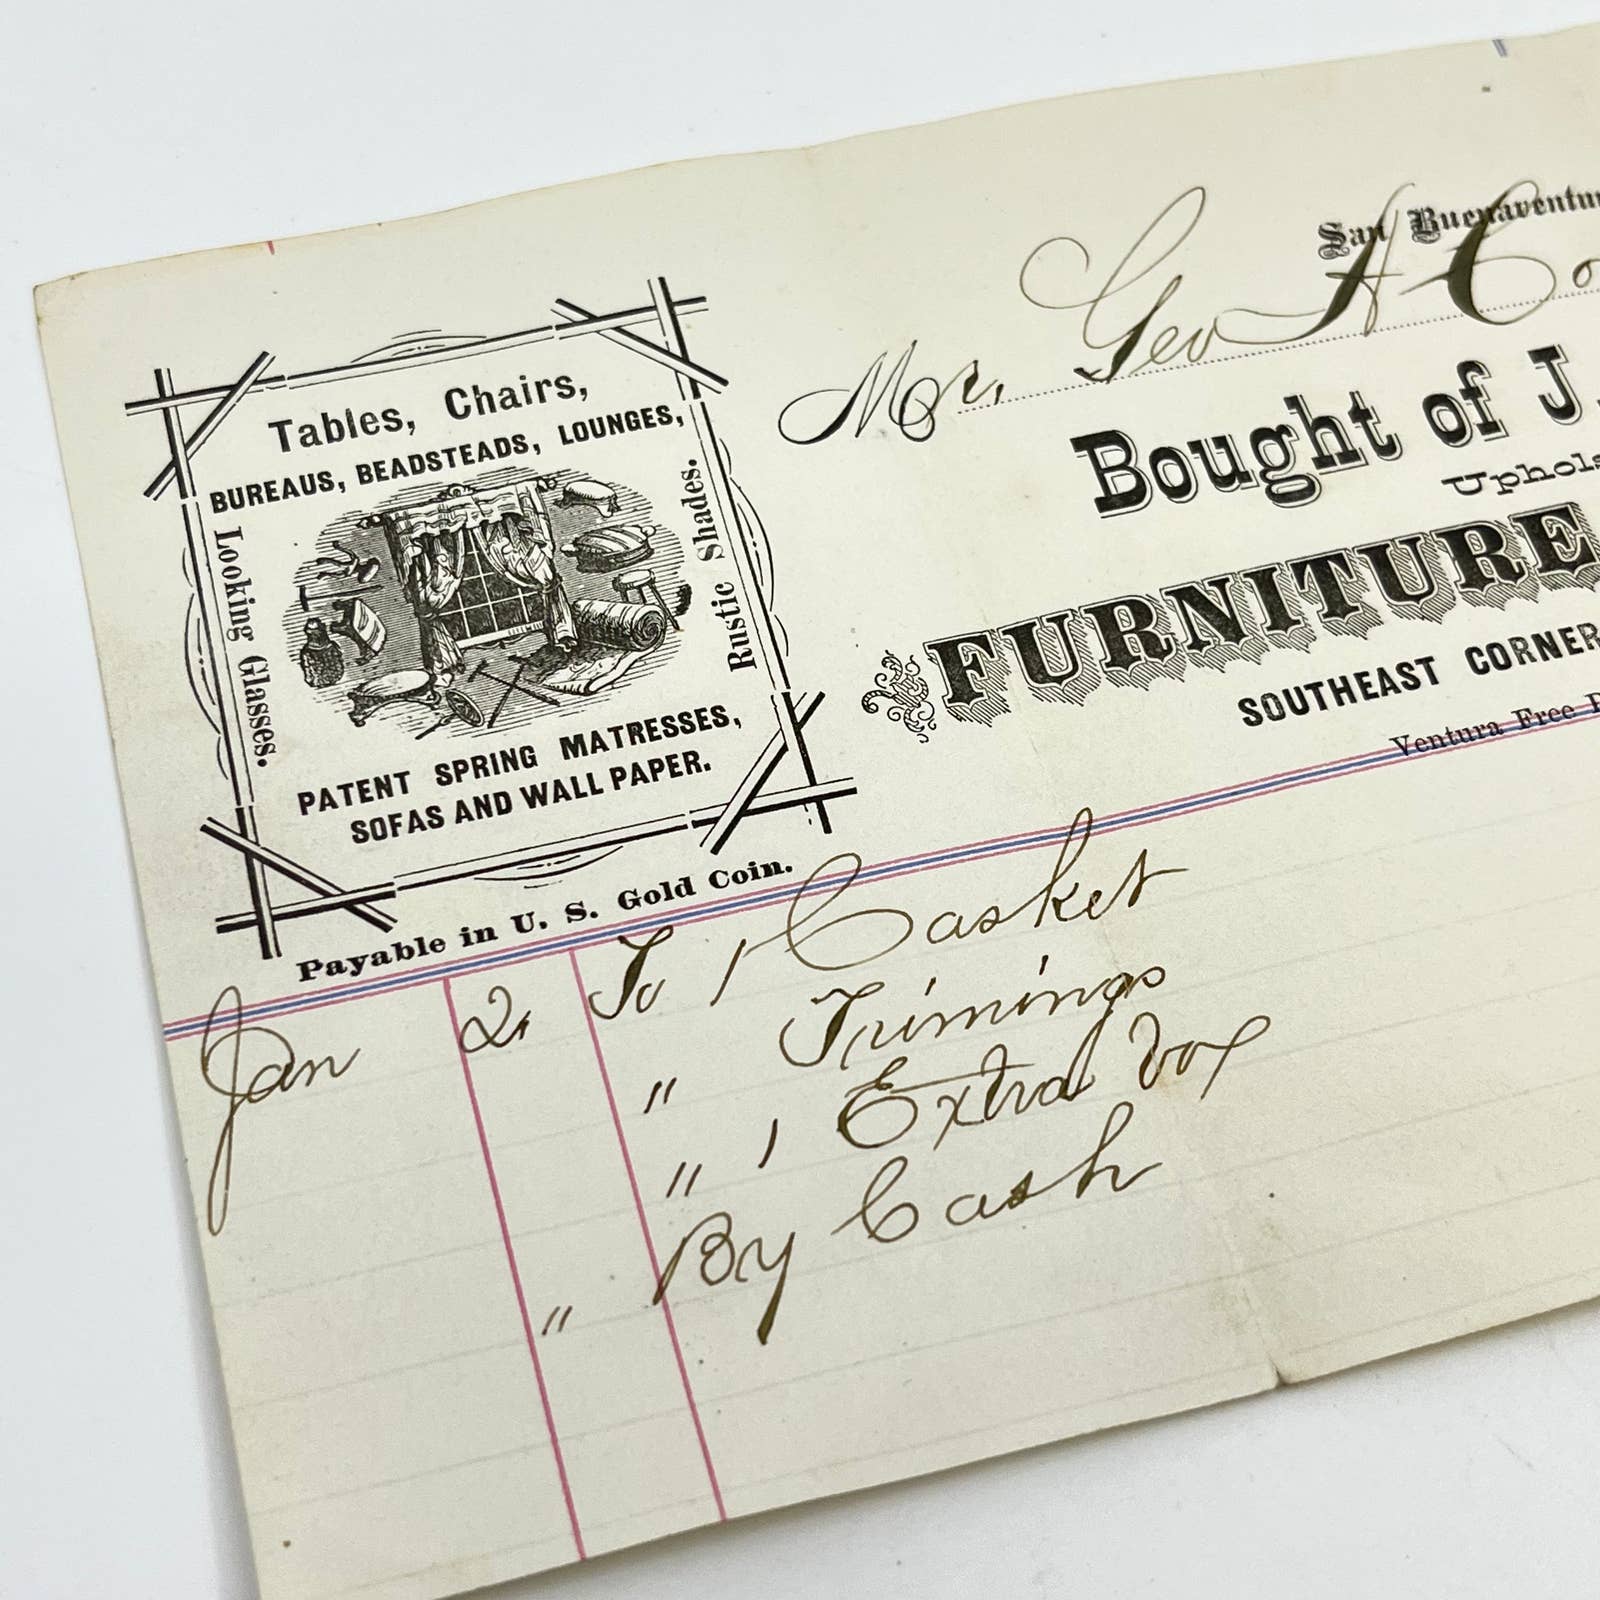 San Buenaventur
Mr. Geo H Co
Bought of J.
Uphols
FURNITURE
SOUTHEAST CORNER
Ventura Free P
Tables, Chairs,
BUREAUS, BEADSTEADS, LOUNGES,
Looking Glasses.
Rustic Shades.
PATENT SPRING MATRESSES,
SOFAS AND WALL PAPER.
Payable in U. S. Gold Coin.
Jan 2, To 1 Casket
" Trimings
" 1 Extra box
" By Cash